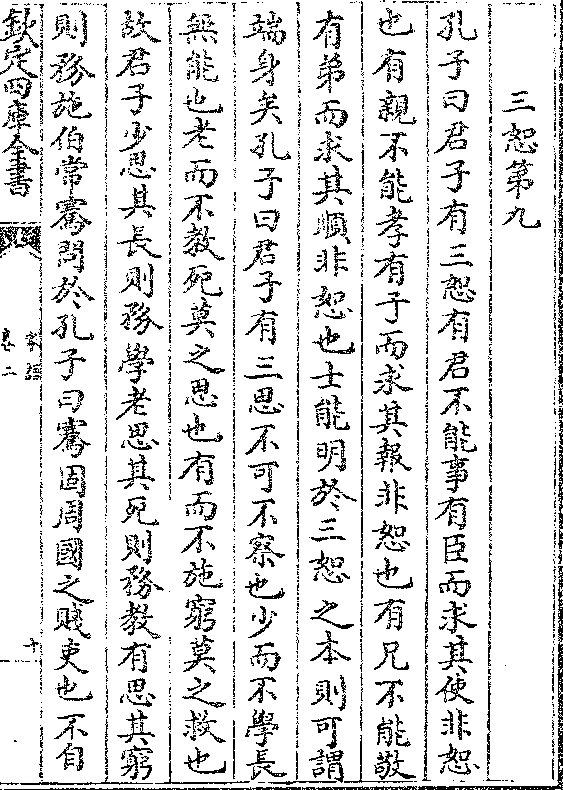 三恕第九
孔子曰君子有三恕有君不能事有臣而求其使非恕
也有親不能孝有子而求其報非恕也有兄不能敬
有弟而求其順非恕也士能明於三恕之本則可謂
端身矣孔子曰君子有三思不可不察也少而不學長
無能也老而不教死莫之思也有而不施窮莫之救也
故君子少思其長則務學老思其死則務教有思其窮
則務施伯常騫問於孔子曰騫固周國之賤吏也不自
欽定四庫全書
家語
卷二
十